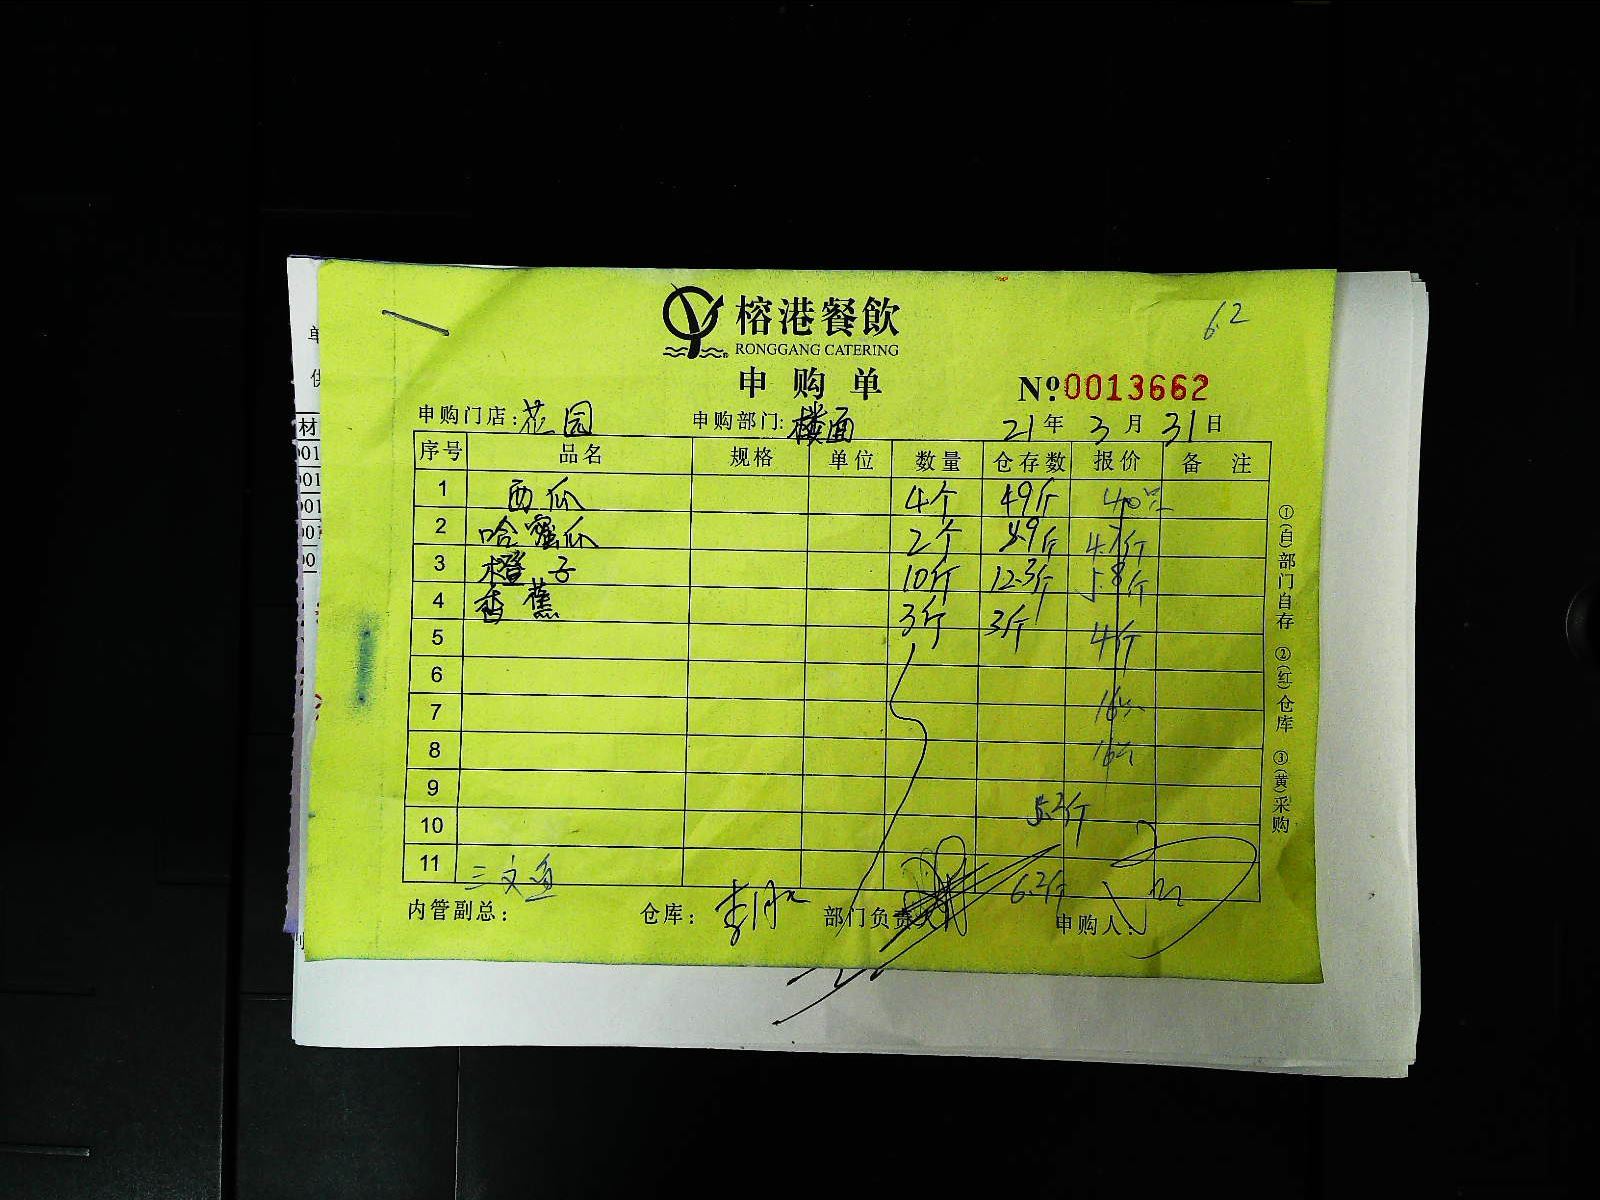 榕港餐飲
RONGGANG CATERING
6.2
申购单
№:0013662
申购门店:花园 申购部门:楼面 21年3月31日
序号 品名 规格 单位 数量 仓存数 报价 备注
1 西瓜 4个 49斤
2 哈蜜瓜 2个 4.7斤
3 橙子 10斤 12.3斤 5.8斤
4 香蕉 3斤 3斤 4斤
5
6
7
8
9
10 5.2斤
11 三文鱼 6.2斤
内管副总: 仓库: 部门负责人 申购人:
①(白)部门自存 ②(红)仓库 ③(黄)采购